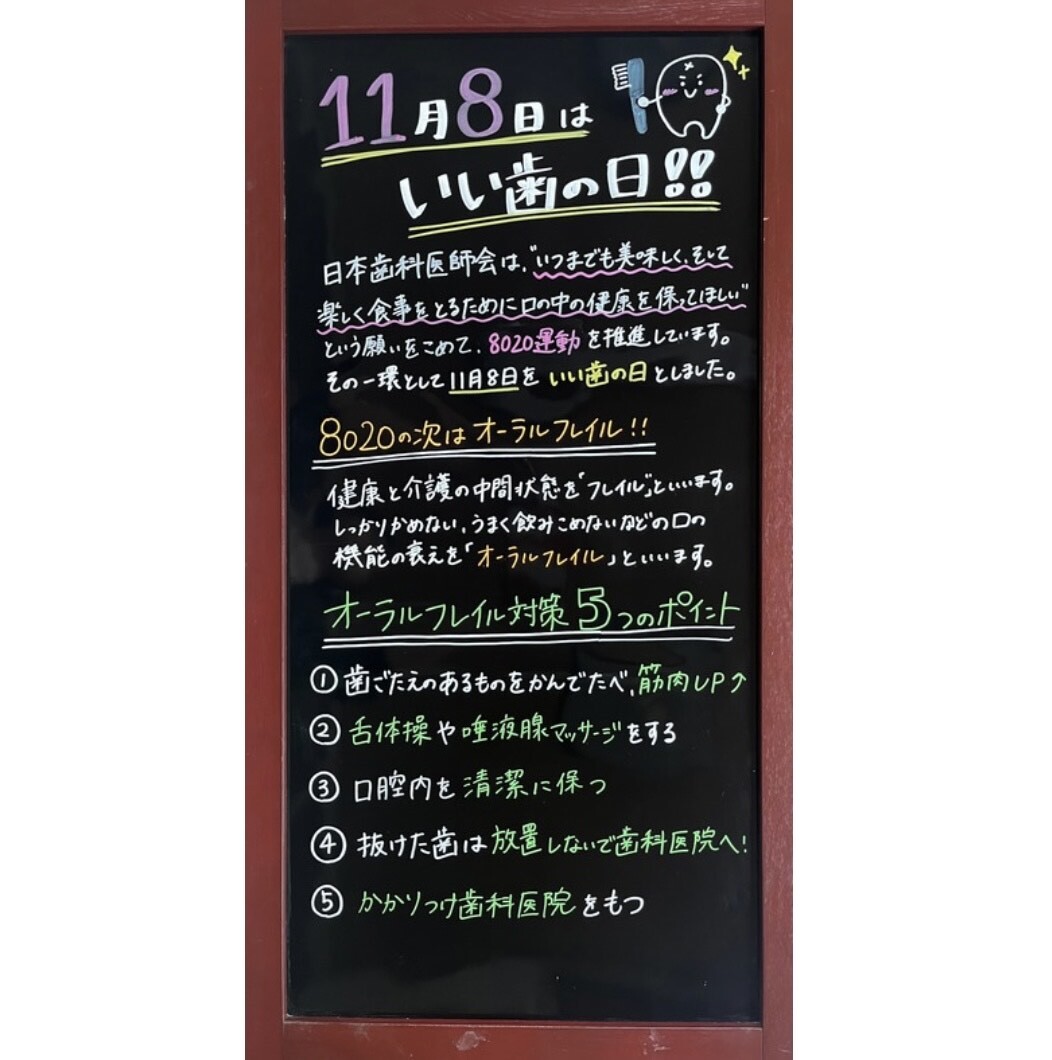 11月8日は
いい歯の日!!
日本歯科医師会は、"いつまでも美味しく、そして
楽しく食事をとるために口の中の健康を保ってほしい"
という願いをこめて、8020運動を推進しています。
その一環として11月8日を いい歯の日 としました。
8020の次は オーラルフレイル!!
健康と介護の中間状態を「フレイル」といいます。
しっかりかめない、うまく飲みこめないなどの口の
機能の衰えを「オーラルフレイル」といいます。
オーラルフレイル対策 5つのポイント
① 歯ごたえのあるものをかんでたべ、筋肉UP↗
② 舌体操や唾液腺マッサージをする
③ 口腔内を清潔に保つ
④ 抜けた歯は放置しないで歯科医院へ!
⑤ かかりつけ歯科医院をもつ